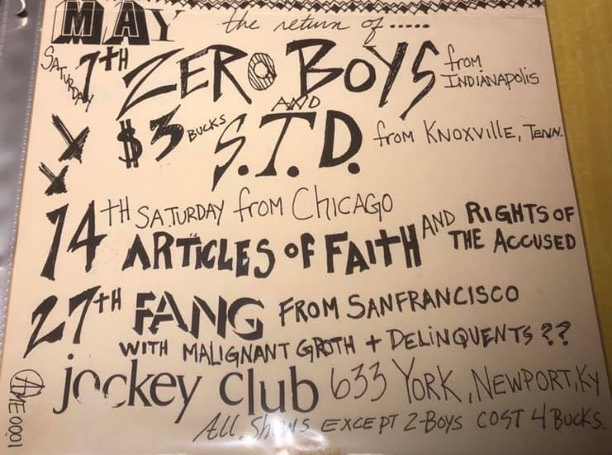 MAY the return of .....
SATURDAY 7TH ZERO BOYS from INDIANAPOLIS
AND
$3 BUCKS S.T.D. from KNOXVILLE, TENN.
14TH SATURDAY from CHICAGO
ARTICLES OF FAITH AND RIGHTS OF THE ACCUSED
27TH FANG FROM SANFRANCISCO
WITH MALIGNANT GROTH + DELINQUENTS ??
jockey club 633 YORK, NEWPORT, KY
All Shows EXCEPT Z-BOYS COST 4 BUCKS.